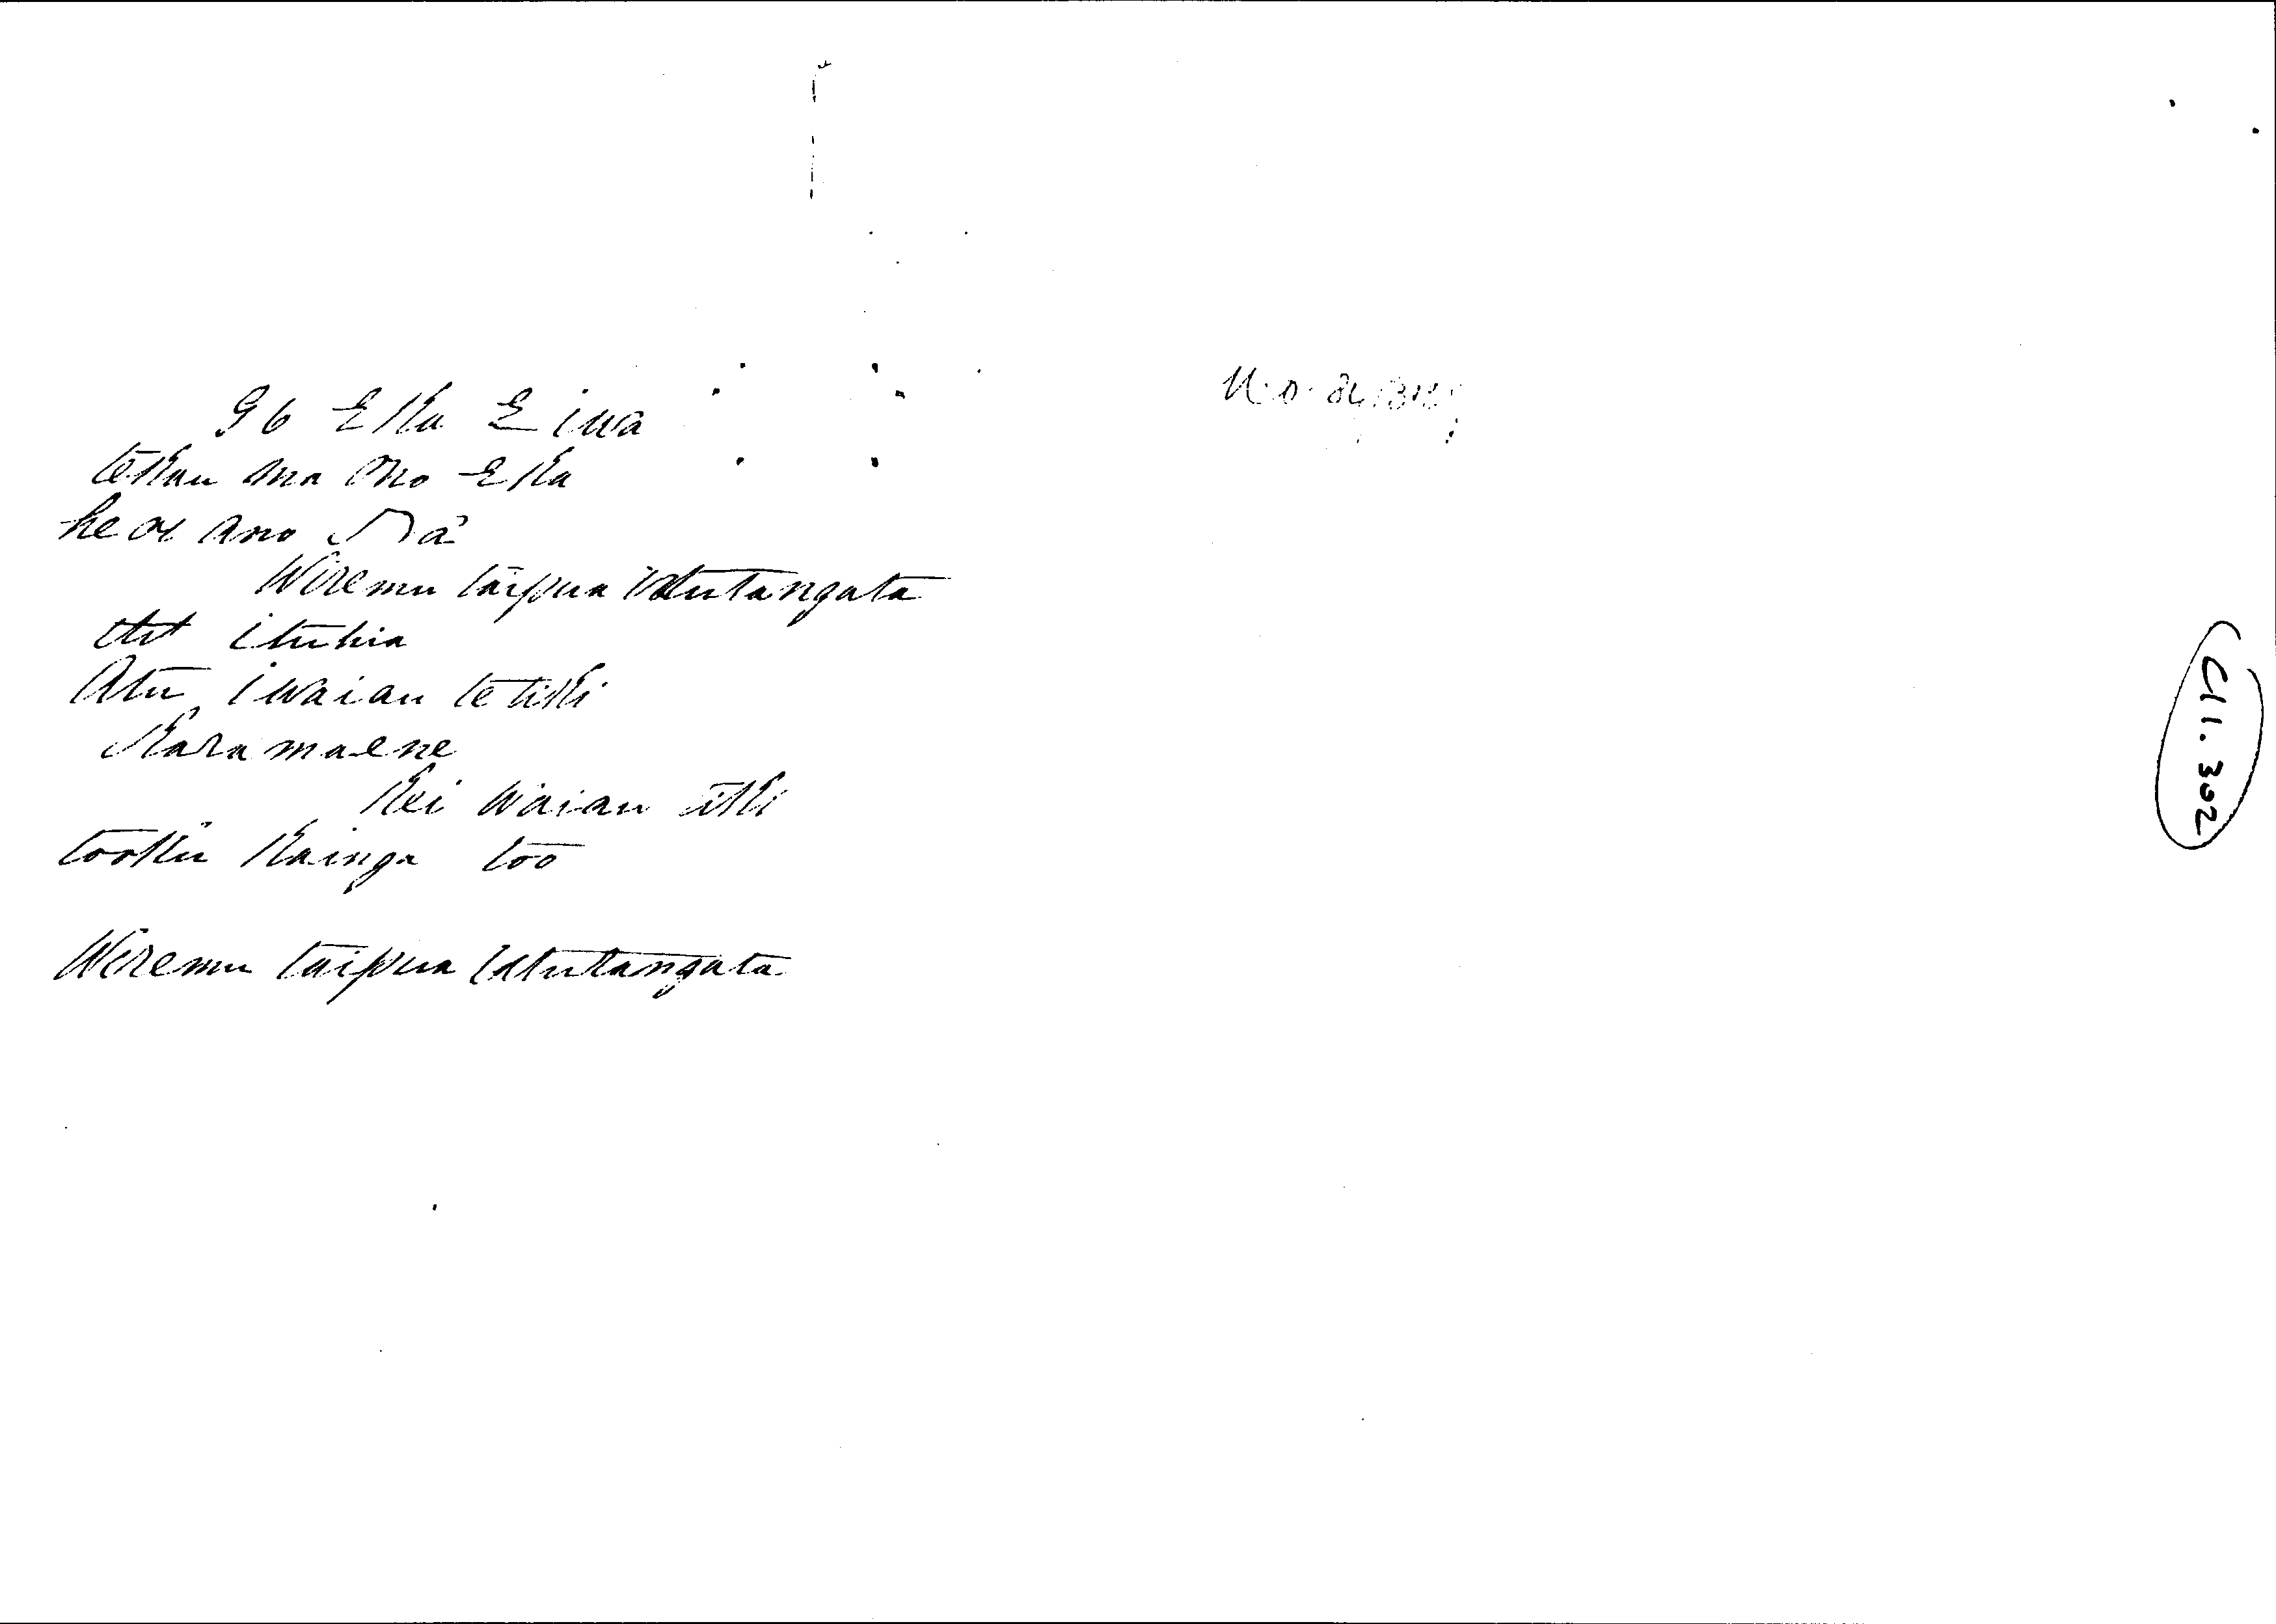 96 Eka E iwa
tekau ma ono Eka
heoi ano Na
Wiremu taipua tetutangata
ituhia
Atu i waiau te tiki
Karamaene
Kei Waiau tiki
tooku Kainga too
Wiremu taipua tetutangata
N.O. 84/
CH 1. 302